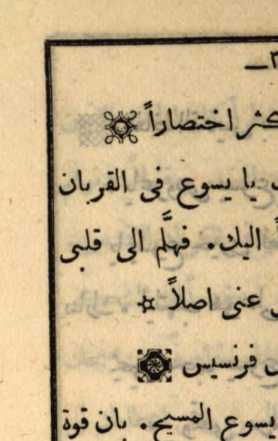 اختصاراً
يا يسوع فى القربان
اليك. فهلَّم الى قلبى
عنى اصلاً
فرنسيس
يسوع المسيح. بان قوة